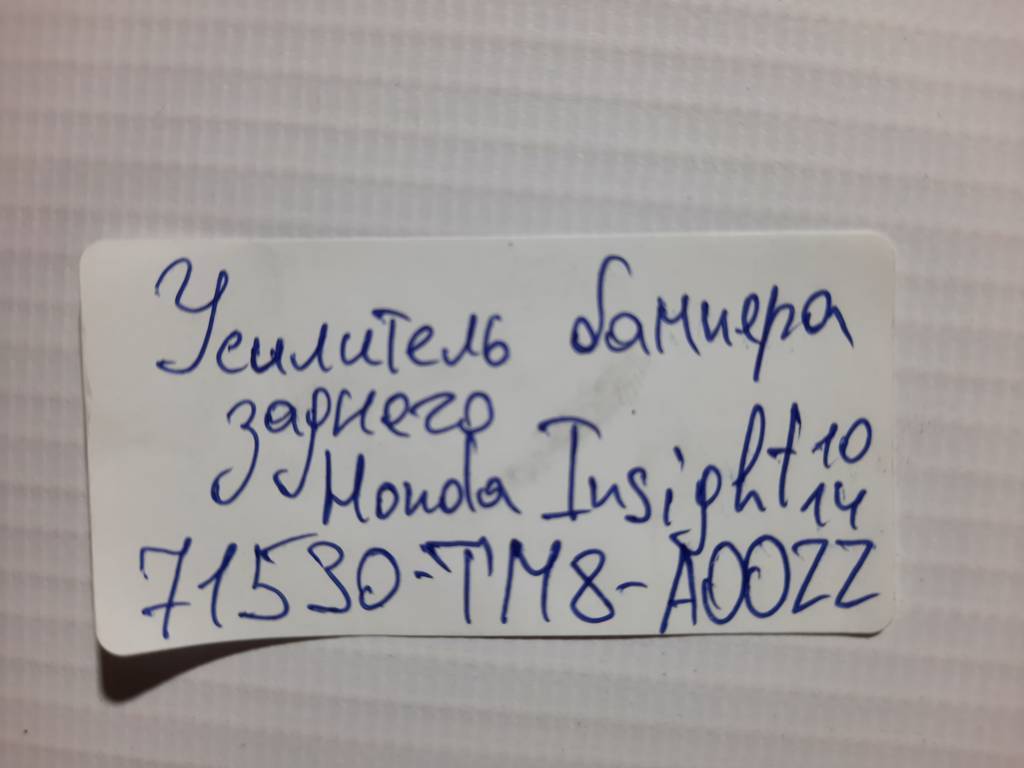 Усилитель бампера
заднего
Honda Insight 10
14
71530-TM8-A00ZZ